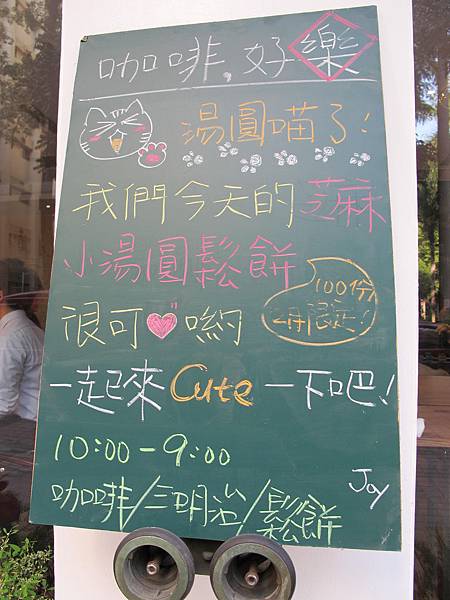 咖啡,好樂
湯圓喵了!
我們今天的芝麻
小湯圓鬆餅
很可♥喲
100份
限定!
一起來Cute一下吧!
10:00-9:00
咖啡/三明治/鬆餅
Joy